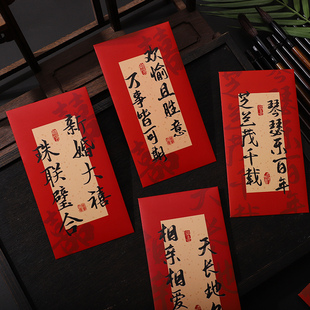 新婚大禧
珠联璧合
欢愉且胜意
万事皆可期
琴瑟乐百年
芝兰茂千载
天长地
相亲相爱